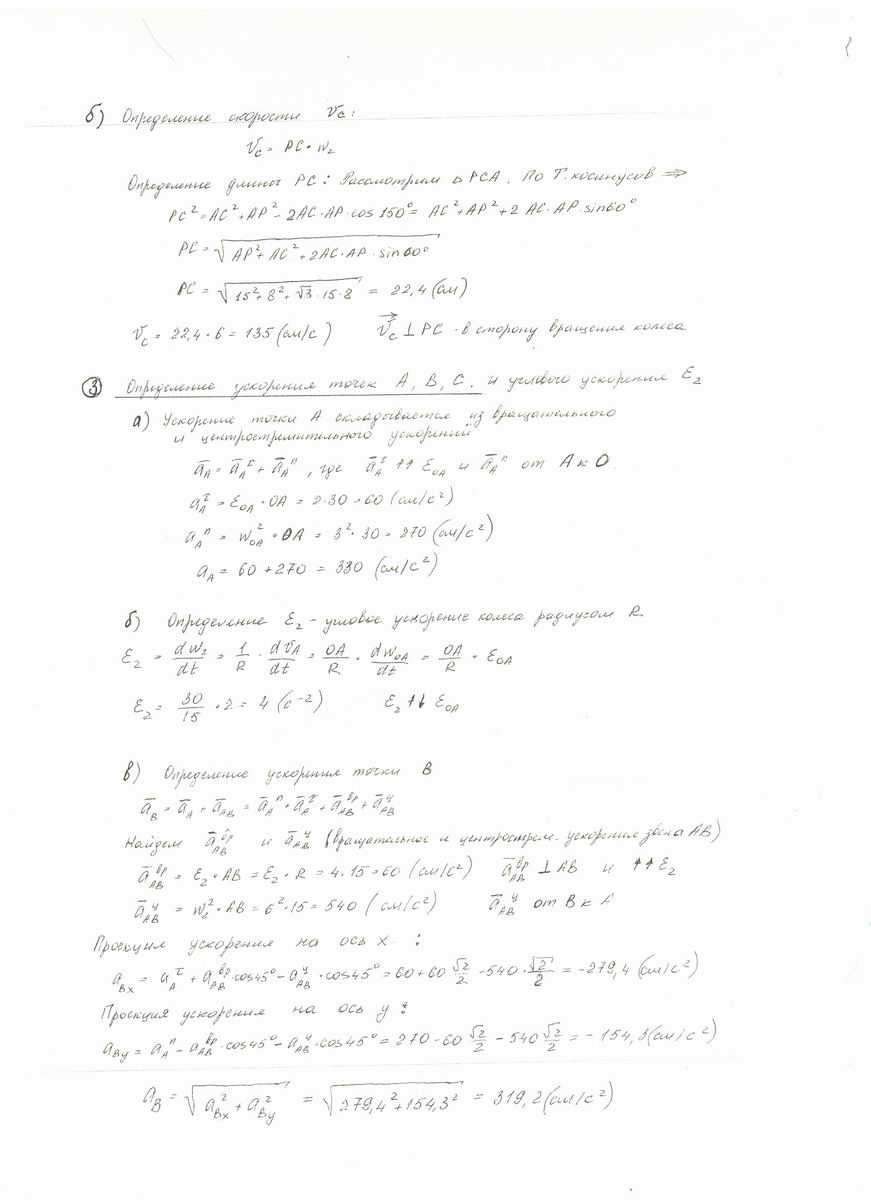 б) Определение скорости Vc:
Vc = PC · w₂
Определение длины PC: Рассмотрим △ PCA. По Т. косинусов ⇒
PC² = AC² + AP² - 2AC·AP·cos 150° = AC² + AP² + 2 AC·AP·sin60°
PC = √(AP² + AC² + 2AC·AP·sin60°)
PC = √(15² + 8² + √3·15·8) = 22,4 (см)
Vc = 22,4·6 = 135 (см/с) V⃗c ⊥ PC - в сторону вращения колеса
③ Определение ускорения точек A, B, C. и углового ускорения ε₂
а) Ускорение точки A складывается из вращательного
и центростремительного ускорений
ā_A = ā_A^τ + ā_A^n, где ā_A^τ ↑↑ ε_OA и ā_A^n от A к O.
a_A^τ = ε_OA · OA = 2·30 = 60 (см/с²)
a_A^n = w²_OA · OA = 3²·30 = 270 (см/с²)
a_A = 60 + 270 = 330 (см/с²)
б) Определение ε₂ - угловое ускорение колеса радиусом R
ε₂ = dw₂/dt = 1/R · dV_A/dt = OA/R · dw_OA/dt = OA/R · ε_OA
ε₂ = 30/15 · 2 = 4 (с⁻²) ε₂ ↑↓ ε_OA
в) Определение ускорения точки B
ā_B = ā_A + ā_AB = ā_A^n + ā_A^τ + ā_AB^вр + ā_AB^ц
Найдем ā_AB^вр и ā_AB^ц (вращательное и центрострем. ускорения звена AB)
ā_AB^вр = ε₂ · AB = ε₂ · R = 4·15 = 60 (см/с²) ā_AB^вр ⊥ AB и ↑↑ ε₂
ā_AB^ц = w₂² · AB = 6²·15 = 540 (см/с²) ā_AB^ц от B к A
Проекция ускорения на ось x :
a_Bx = a_A^τ + a_AB^вр · cos45° - a_AB^ц · cos45° = 60 + 60 √2/2 - 540 · √2/2 = -279,4 (см/с²)
Проекция ускорения на ось y :
a_By = a_A^n - a_AB^вр · cos45° - a_AB^ц · cos45° = 270 - 60 √2/2 - 540 √2/2 = -154,3 (см/с²)
a_B = √(a²_Bx + a²_By) = √(279,4² + 154,3²) = 319,2 (см/с²)